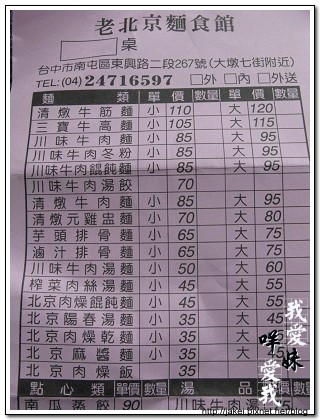 老北京麵食館
桌
台中市南屯區東興路二段267號(大墩七街附近)
TEL:(04)24716597 □外 □內 □外送
麵 類 單價 數量 單價 數量
清燉牛筋麵 小 110 大 120
三寶牛高麵 小 105 大 115
川味牛肉麵 小 85 大 95
川味牛肉冬粉 小 85 大 95
川味牛肉餛飩麵 小 85 大 95
川味牛肉湯餃 70
清燉牛肉麵 小 85 大 95
清燉元雞盅麵 小 70 大 80
芋頭排骨麵 小 65 大 75
滷汁排骨麵 小 65 大 75
川味牛肉湯麵 小 50 大 60
榨菜肉絲湯麵 小 45 大 55
北京肉燥餛飩麵 小 45 大 55
北京陽春湯麵 小 35 大 45
北京肉燥乾麵 小 35 大
北京麻醬麵 小 35 大 45
北京肉燥飯 35
點心類 單價 數量 湯品
南瓜蒸餃 90 川味牛肉湯
我愛妹
咩愛我
http://jakel.pixnet.net/blog